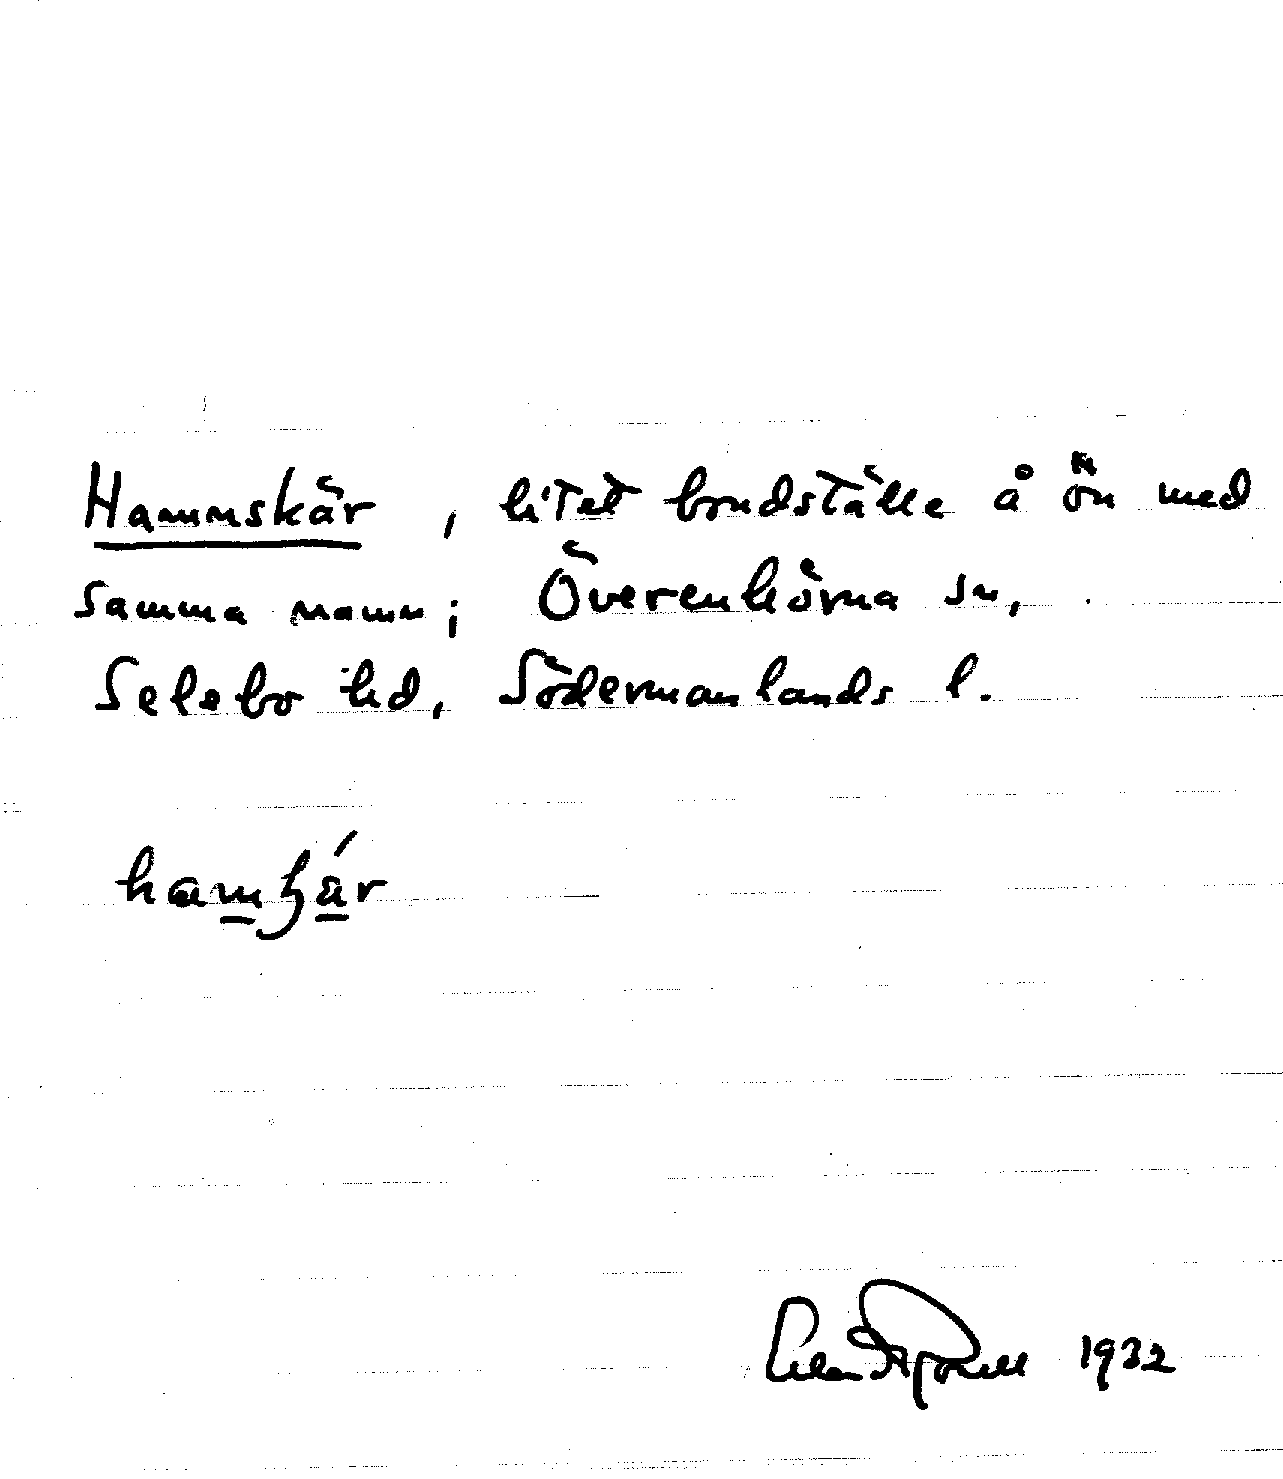 Hammskär, litet bondställe å ön med
samma namn; Överenhörna sn,
Selebo hd, Södermanlands l.
1932